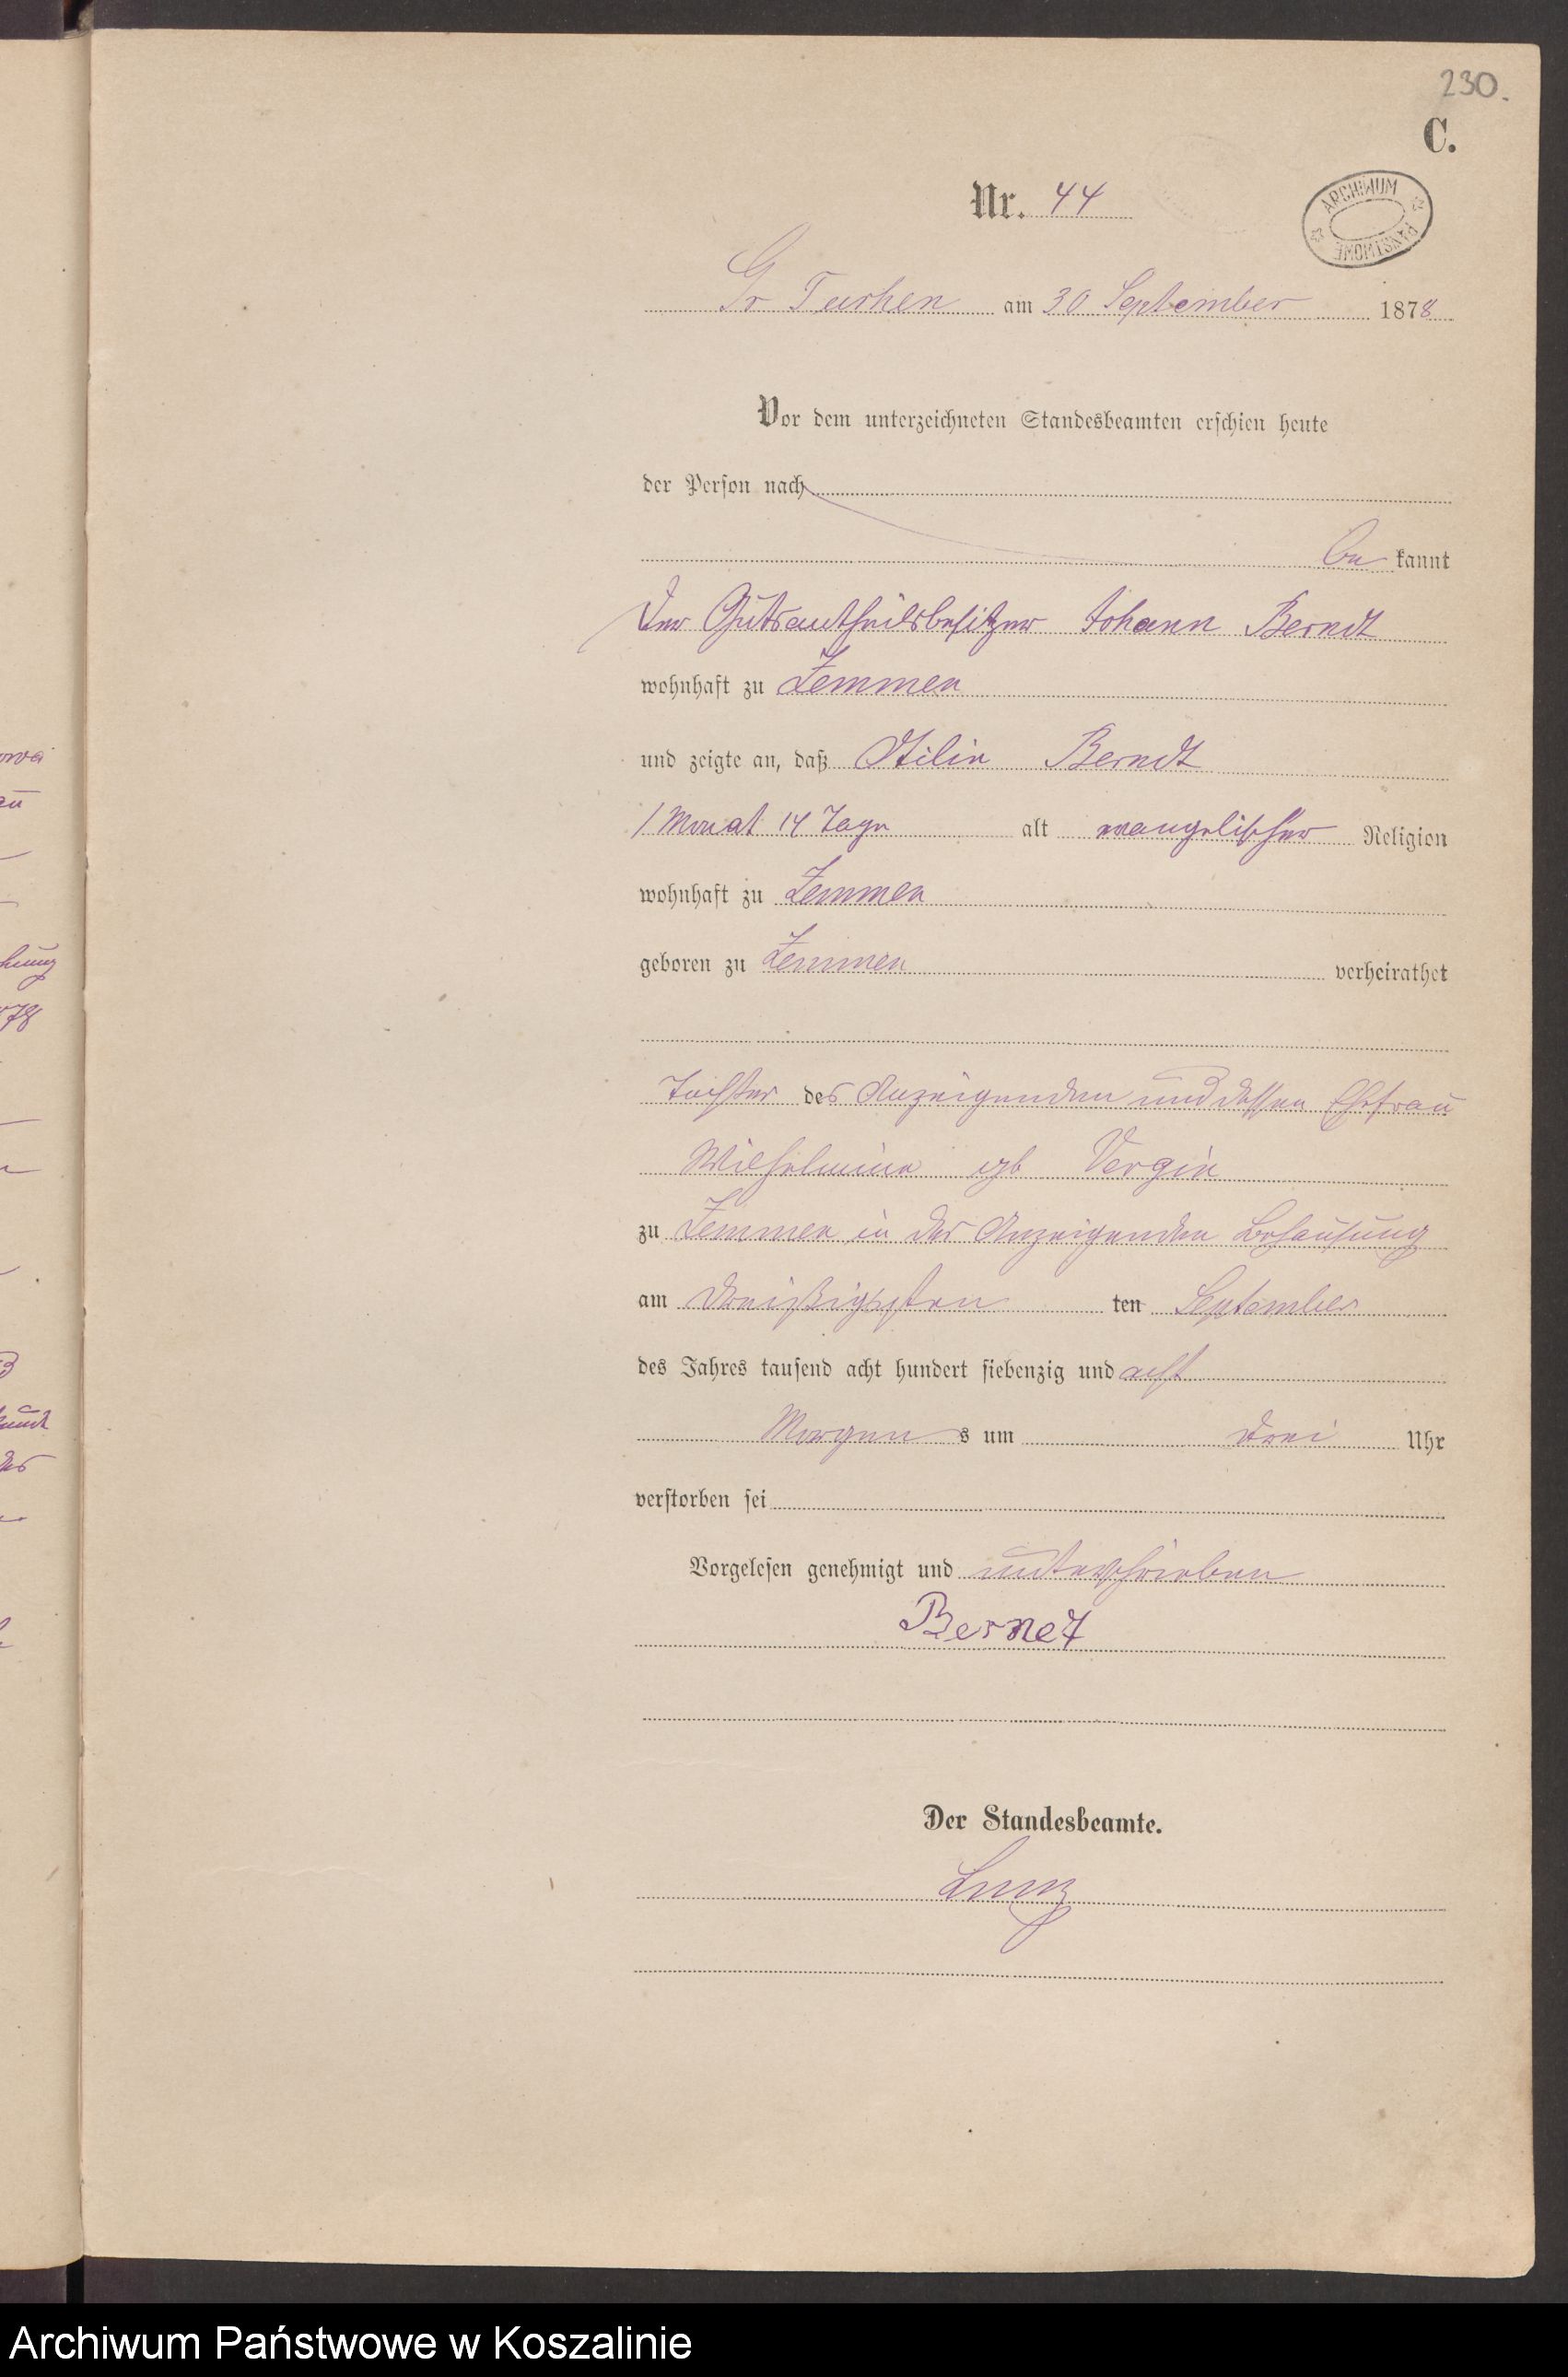 230.
C.
Nr. 44
ARCHIWUM PAŃSTWOWE
Gr Tuchen am 30 September 1878
Vor dem unterzeichneten Standesbeamten erschien heute
der Person nach
be kannt
der Gutsantheilsbesitzer Johann Berndt
wohnhaft zu Zemmen
und zeigte an, daß Otilie Berndt
1 Monat 14 Tage alt evangelischer Religion
wohnhaft zu Zemmen
geboren zu Zemmen verheirathet
Tochter des Anzeigenden und dessen Ehefrau
Wilhelmine geb Vergin
zu Zemmen in des Anzeigenden Behausung
am dreißigsten ten September
des Jahres tausend acht hundert siebenzig und acht
Morgen s um drei Uhr
verstorben sei
Vorgelesen genehmigt und unterschrieben
Berndt
Der Standesbeamte.
Archiwum Państwowe w Koszalinie